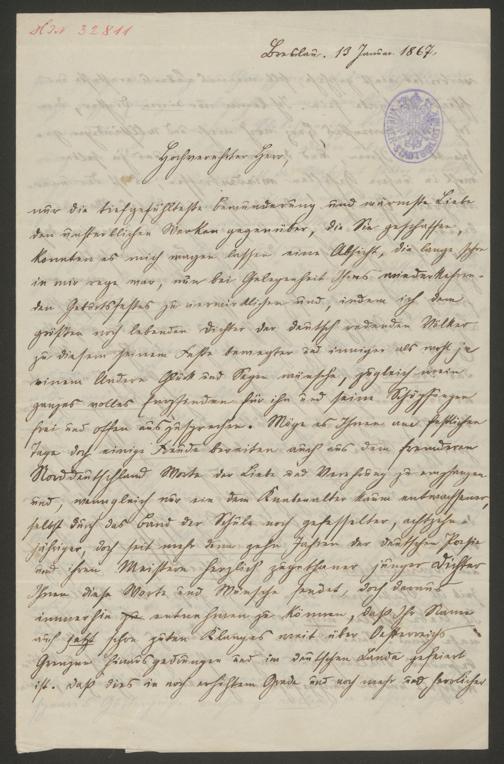 HIN 32811
Breslau. 13 Januar 1867.
Hochverehrter Herr,
nur die tiefgefühlteste Bewunderung und wärmste Liebe
den unsterblichen Werken gegenüber, die Sie geschaffen,
konnten es mich wagen lassen eine Absicht, die lange schon
in mir rege war, nun bei Gelegenheit Ihres wiederkehren-
den Geburtsfestes zu verwirklichen und, indem ich dem
größten noch lebenden Dichter der deutsch redenden Völker
zu diesem seinem Feste bewegter und inniger als wohl je
einem Andern Glück und Segen wünsche, zugleich mein
ganzes volles Empfinden für ihn und seine Schöpfungen
frei und offen auszusprechen. Möge es Ihnen am festlichen
Tage doch einige Freude bereiten auch aus dem ferneren
Norddeutschland Worte der Liebe und Verehrung zu empfangen
und, wenngleich nur ein dem Knabenalter kaum entwachsener,
selbst durch das Band der Schule noch gefesselter, achtzehn-
jähriger, doch seit mehr denn zehn Jahren der deutschen Poesie
und ihren Meistern herzlich zugethaner junger Dichter
Ihnen diese Worte und Wünsche sendet, doch daraus
immerhin zu entnehmen zu können, daß Ihr Name
auch jetzt schon guten Klanges weit über Oesterreichs
Grenzen hinausgedrungen und im deutschen Lande gefeiert
ist. Daß dies in noch erhöhtem Grade und noch mehr und herrlicher